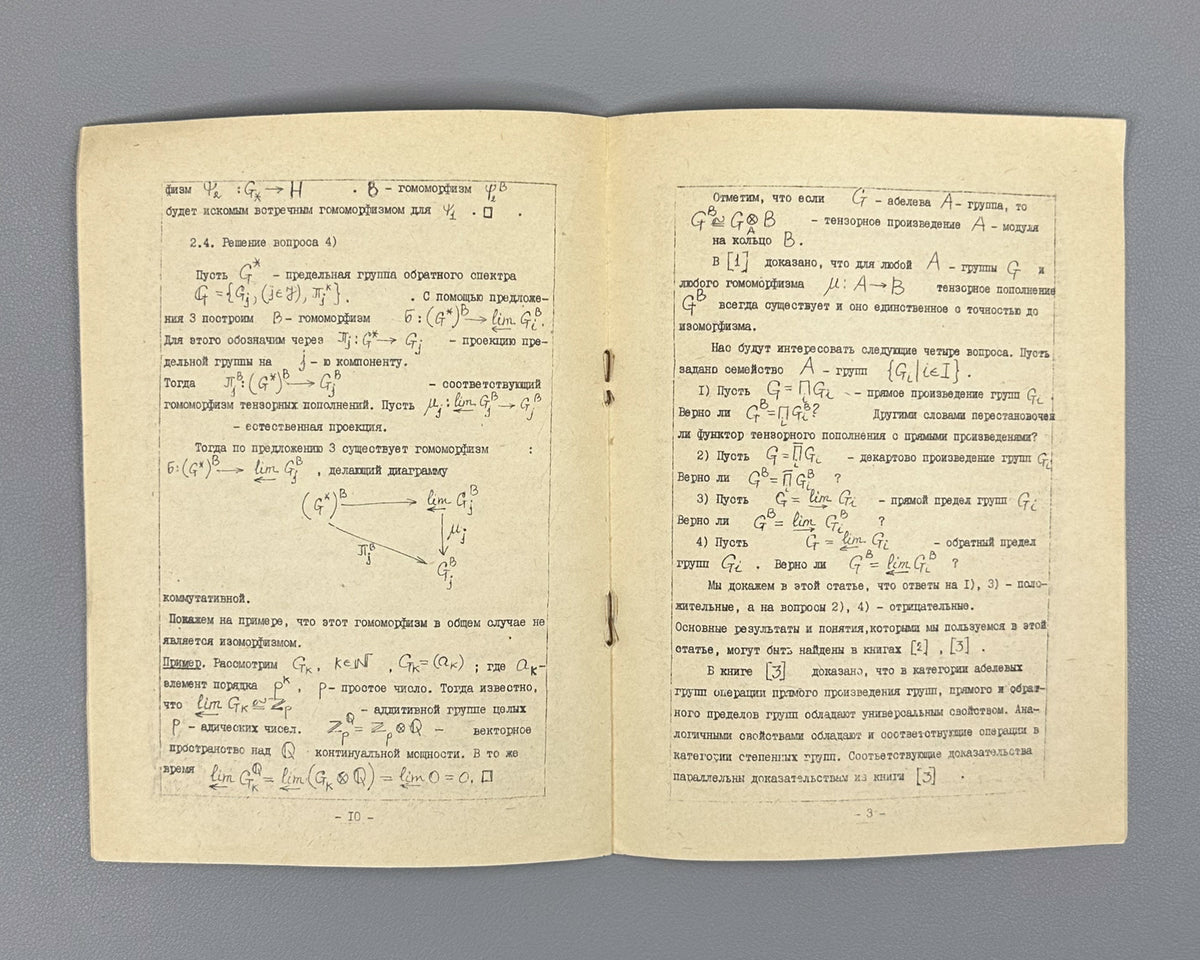 физм ψ₂ : G_* → H . B - гомоморфизм φ₂^B
будет искомым встречным гомоморфизмом для ψ₁ . □ .
2.4. Решение вопроса 4)
Пусть G^* - предельная группа обратного спектра
G = {G_j, (j∈J), π_j^k} . . С помощью предложе-
ния 3 построим B - гомоморфизм Б : (G^*)^B → lim← G_i^B.
Для этого обозначим через π_j : G^* → G_j - проекцию пре-
дельной группы на j - ю компоненту.
Тогда π_j^B : (G^*)^B → G_j^B - соответствующий
гомоморфизм тензорных пополнений. Пусть μ_j : lim← G_j^B → G_j^B
- естественная проекция.
Тогда по предложению 3 существует гомоморфизм :
Б : (G^*)^B → lim← G_j^B , делающий диаграмму
(G^*)^B → lim← G_j^B
π_j^B ↓ μ_j
G_j^B
коммутативной.
Покажем на примере, что этот гомоморфизм в общем случае не
является изоморфизмом.
Пример. Рассмотрим G_k, k∈ℕ , G_k = (a_k) ; где a_k -
элемент порядка p^k , p - простое число. Тогда известно,
что lim← G_k ≅ Z_p - аддитивной группе целых
p - адических чисел. Z_p^ℚ = Z_p ⊗ ℚ - векторное
пространство над ℚ континуальной мощности. В то же
время lim← G_k^ℚ = lim← (G_k ⊗ ℚ) = lim← 0 = 0. □
- 10 -
Отметим, что если G - абелева A - группа, то
G^B ≅ G ⊗_A B - тензорное произведение A - модуля
на кольцо B.
В [1] доказано, что для любой A - группы G и
любого гомоморфизма μ : A → B тензорное пополнение
G^B всегда существует и оно единственное с точностью до
изоморфизма.
Нас будут интересовать следующие четыре вопроса. Пусть
задано семейство A - групп {G_i | i∈I}.
1) Пусть G = ∏_i G_i - прямое произведение групп G_i.
Верно ли G^B = ∏_i G_i^B ? Другими словами перестановочен
ли функтор тензорного пополнения с прямыми произведенями?
2) Пусть G = ∏̄_i G_i - декартово произведение групп G_i
Верно ли G^B = ∏̄_i G_i^B ?
3) Пусть G = lim→ G_i - прямой предел групп G_i
Верно ли G^B = lim→ G_i^B ?
4) Пусть G = lim← G_i - обратный предел
групп G_i . Верно ли G^B = lim← G_i^B ?
Мы докажем в этой статье, что ответы на 1), 3) - поло-
жительные, а на вопросы 2), 4) - отрицательные.
Основные результаты и понятия,которыми мы пользуемся в этой
статье, могут быть найдены в книгах [2] , [3] .
В книге [3] доказано, что в категории абелевых
групп операции прямого произведения групп, прямого и обрат-
ного пределов групп обладают универсальным свойством. Ана-
логичными свойствами обладают и соответствующие операции в
категории степенных групп. Соответствующие доказательства
параллельны доказательствам из книги [3] .
- 3 -